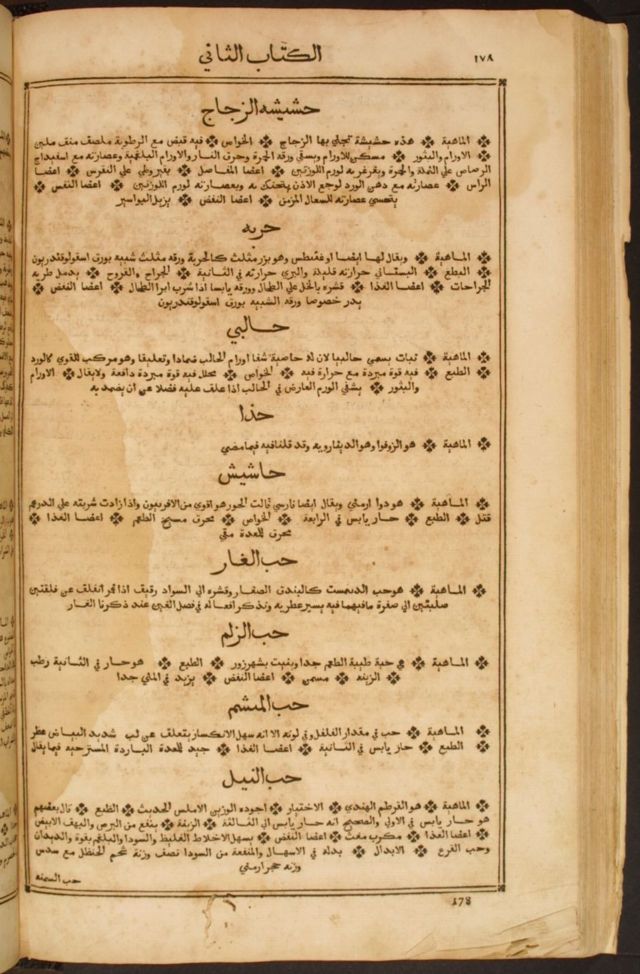 الكتاب الثاني
١٧٨
حشيشه الزجاج
الماهية هذه حشيشة تجلي بها الزجاج الخواص فيه قبض مع الرطوبة ملصف منف ملين
الاورام والبثور مسكن للاورام ويسقى ورقه الحمرة وحرق النار والاورام البلغمية وعصارته مع اسفيداج
الرصاص علي النملة والحمرة ويغرغر به لورم اللوزتين اعضا المفاصل بقيروطي علي النقرس اعضا
الراس عصارته مع دهن الورد لوجع الاذن وبعصارته لورم اللوزتين اعضا النفس
يتحسي عصارته للسعال المزمن اعضا النفض يزيل البواسير
حربه
الماهية ويقال لها ايضا وهو بزر مثلث كالحربة ورقه مثلث شبيه بورق اسقولوقندريون
الطبع البستاني حرارته قليلة والبري حرارته في الثانية الجراح والقروح يدمل طريه
الجراحات اعضا الغذا قشره بالخل علي الطحال وورقه يابسا اذا شرب ابرا الطحال اعضا النفض
يدر خصوصا ورقه الشبيه بورق اسقولوقندريون
حالبي
الماهية نبات يسمي حالبيا لان له خاصية شفا اورام الحالب ضمادا وتعليقا وهو مركب القوي كالورد
الطبع فيه قوة مبردة مع حرارة فيه الخواص محلل فيه قوة مبردة دافعة الاورام
والبثور يشفي الورم العارض في الحالب اذا علق عليه فضلا عن ان يضمد به
حذا
الماهية هو الزوفرا وهو الدينارويه وقد قلنا فيه فيما مضي
حاشيش
الماهية هو دوا ارمني ويقال ايضا فارسي وهو اقوي من الافربيون واذا زادت شربته علي الدرهم
قتل الطبع حار يابس في الرابعة الخواص محرق مسيخ الطعم اعضا الغذا
محرق للمعدة مقي
حب الغار
الماهية هو حب الدهمست كالبندق الصغار وقشره الي السواد رقيق اذا انفلق عن فلقتين
صلبتين الي صفرة ما فيهما فيه يسير عطريه ونذكر افعاله في فصل الغين عند ذكرنا الغار
حب الزلم
الماهية هي حبة طيبة الطعم جدا وينبت بشهرزور الطبع هو حار في الثانية رطب
الزينه مسمن اعضا النفض يزيد في المني جدا
حب الميشم
الماهية حب في مقدار الفلفل وفي لونه الا انه سهل الانكسار يتفلق عن لب شديد البياض عطر
الطبع حار يابس في الثانية اعضا الغذا جيد للمعدة الباردة المسترخيه فيما يقال
حب النيل
الماهية هو القرطم الهندي الاختيار اجوده الوزين الاملس الحديث الطبع قال بعضهم
هو حار يابس في الاولي والصحيح انه حار يابس الي الثالثة الزينة ينفع من البرص والبهق الابيض
اعضا الغذا مكرب مغث اعضا النفض يسهل الاخلاط الغليظ والسودا والبلغم بقوة والديدان
وحب القرع الابدال بدله في الاسهال والمنفعة من السودا نصف وزنة شحم الحنظل مع سدس
وزنه حجر ارمني
حب السمنه
178